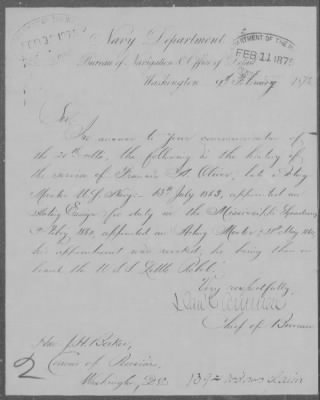 FEB 10 1875
DEPARTMENT OF THE
FEB 11 1875
Navy Department
Bureau of Navigation & Office of Detail
Washington 9th February 1875
Sir
In answer to your communication of
the 20th ulto, the following is the history of
the service of Francis late Acting
Master U.S. Navy. 13th July 1863, appointed an
Acting Ensign for duty in the Mississippi Squadron
appointed an Acting Master 21st May
his appointment was revoked, he being then on
board the U.S.S. Little Rebel.
Very respectfully
Chief of Bureau
Hon. J.H. Baker,
Comms of Pensions,
Washington, D.C.
2